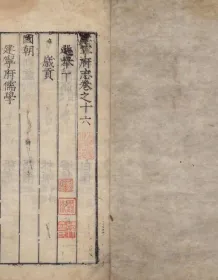 建寧府志卷之十六
選舉下
歲貢
國朝
建寧府儒學